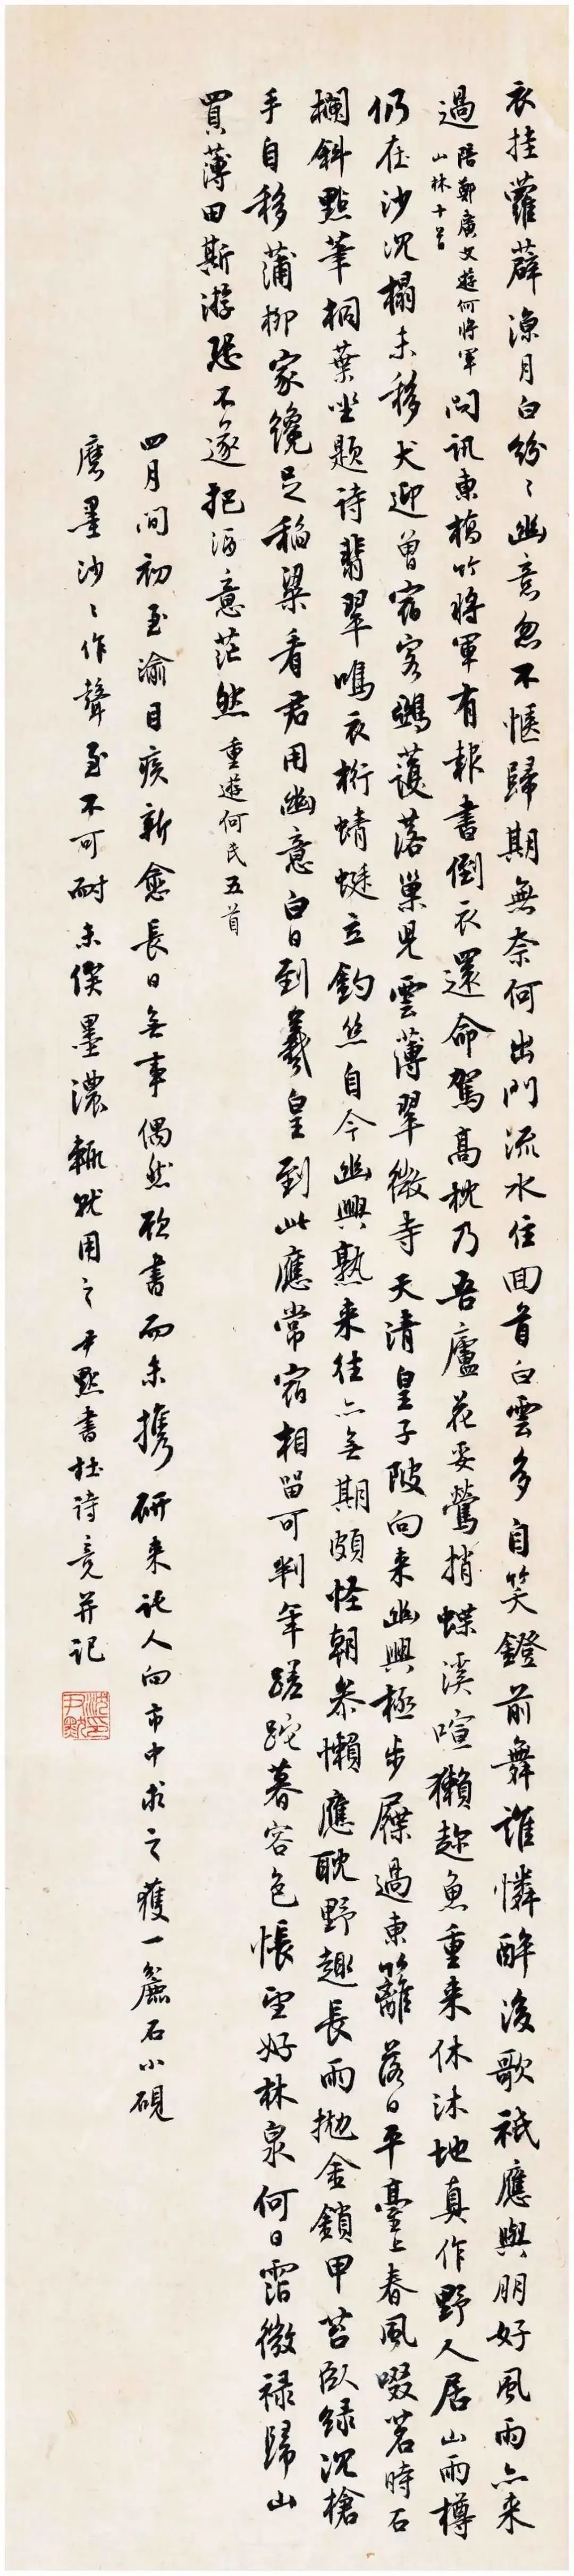 衣挂蘿薜涼月白紛〻幽意忽不愜歸期無奈何出門流水住回首白雲多自笑鐙前舞誰憐醉後歌祇應與朋好風雨亦来
過陪鄭廣文遊何將軍山林十首問訊東橋竹將軍有報書倒衣還命駕高枕乃吾廬花妥鶯捎蝶溪喧獺趁魚重来休沐地真作野人居山雨樽
仍在沙沉榻未移犬迎曾宿客鴉護落巢兒雲薄翠微寺天清皇子陂向来幽興極步屧過東籬落日平臺上春風啜茗時石
欄斜點筆桐葉坐題詩翡翠鳴衣桁蜻蜓立釣丝自今幽興熟来往亦無期頗怪朝参懶應耽野趣長雨抛金鎖甲苔卧綠沉槍
手自移蒲柳家纔足稻粱看君用幽意白日到羲皇到此應常宿相留可判年蹉跎暮容色悵望好林泉何日霑微禄歸山
買薄田斯游恐不遂把酒意茫然重遊何氏五首
四月間初至渝目疾新愈長日無事偶然欲書而未攜研来託人向市中求之獲一麁石小硯
磨墨沙〻作聲至不可耐未俟墨濃輒就用之尹默書杜詩竟并記
沈尹默